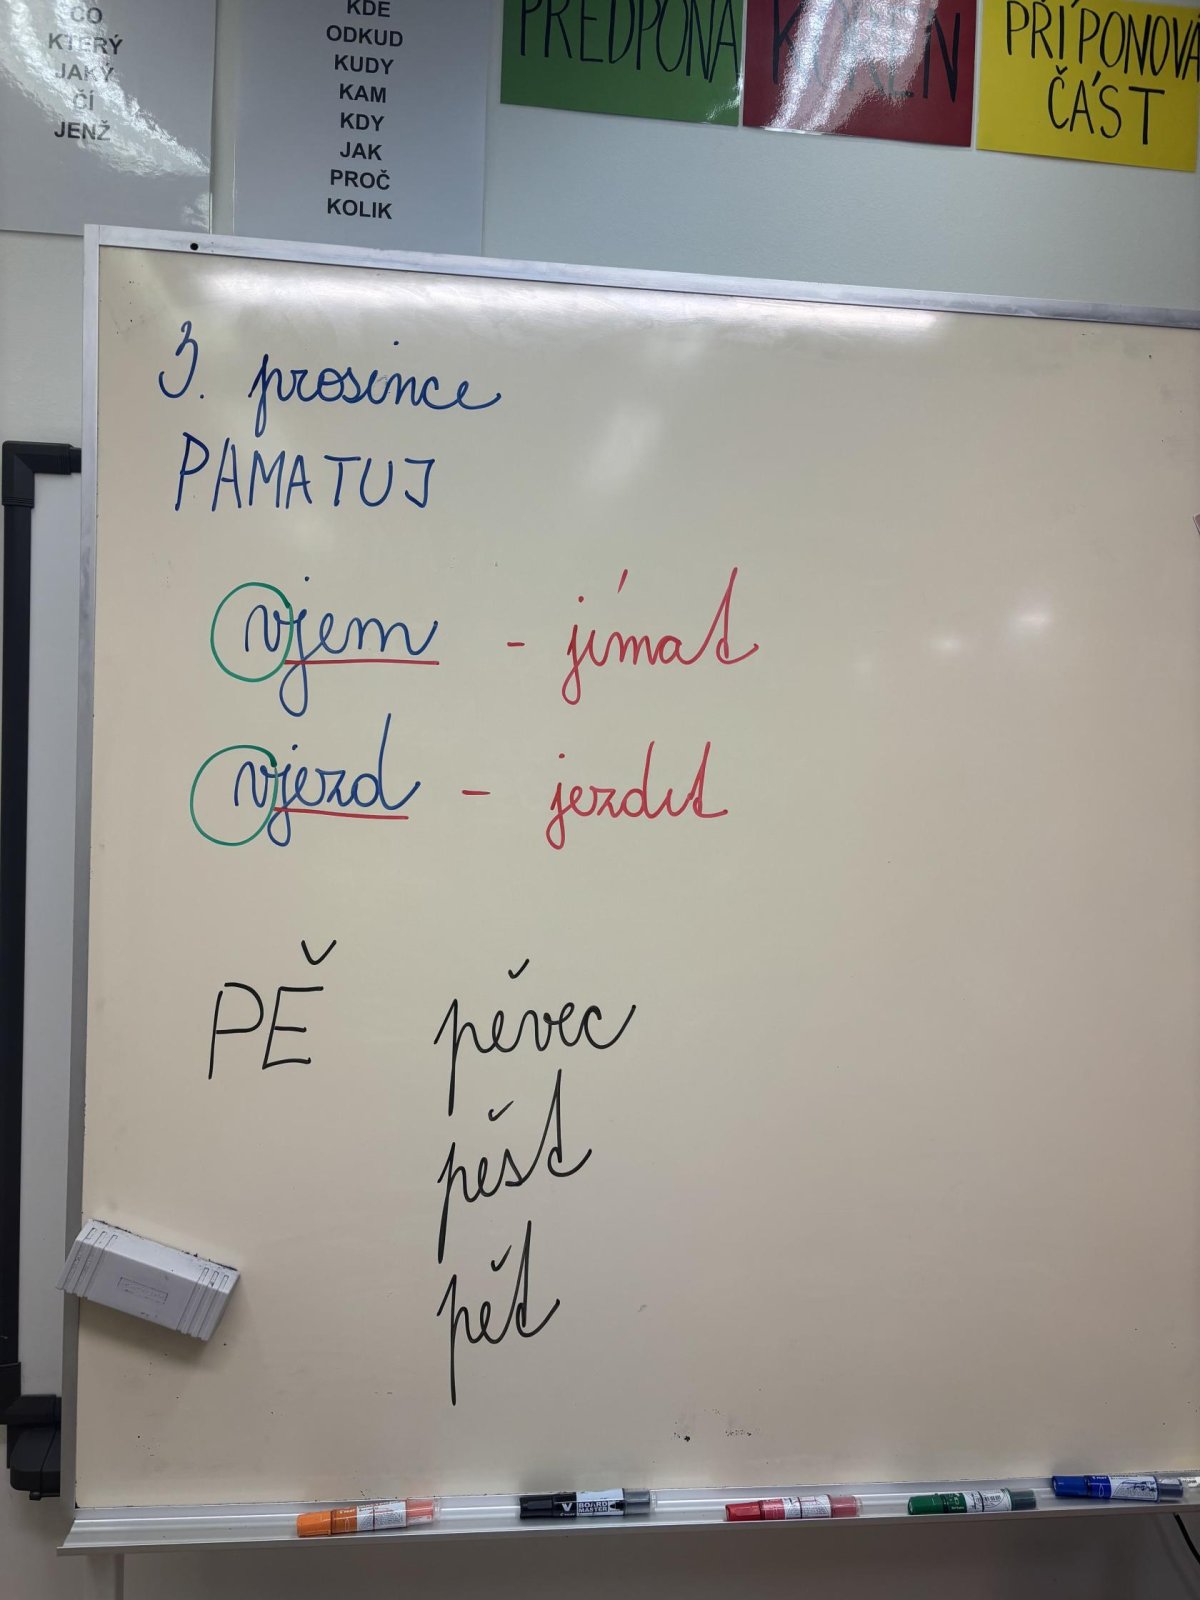 CO
KTERÝ
JAKÝ
ČÍ
JENŽ
KDE
ODKUD
KUDY
KAM
KDY
JAK
PROČ
KOLIK
PŘEDPONA
KOŘEN
PŘÍPONOVÁ
ČÁST
3. prosince
PAMATUJ
vjem - jímat
vjezd - jezdit
PĚ pěvec
pěst
pět
V BOARD MASTER